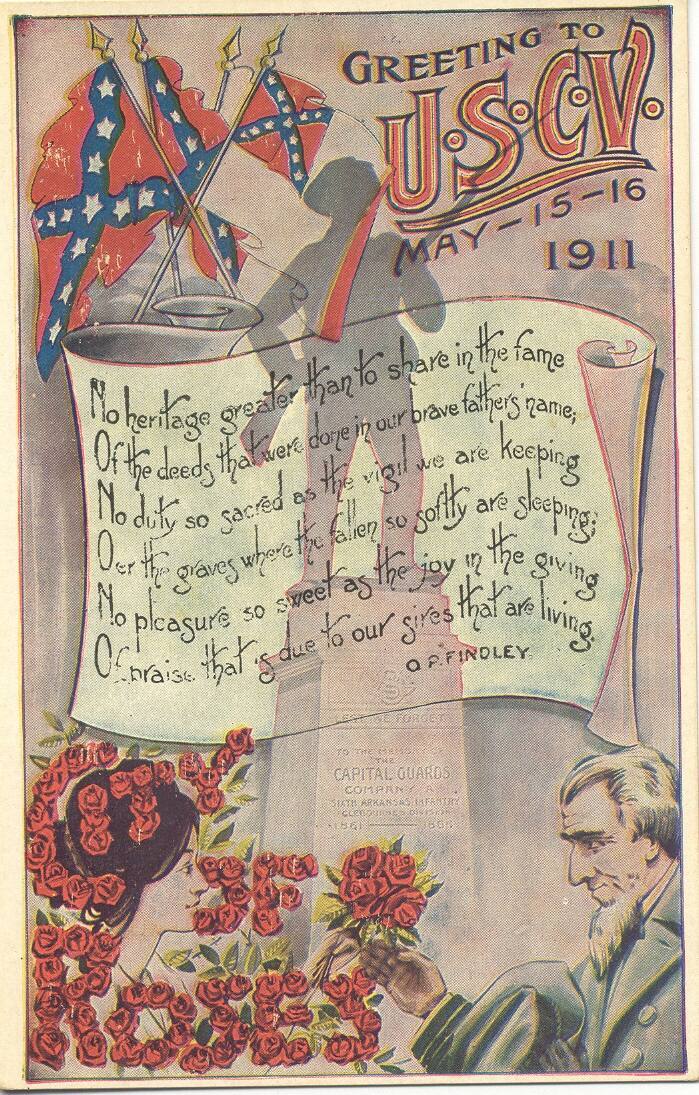 GREETING TO
U.S.C.V.
MAY-15-16
1911
No heritage greater than to share in the fame
Of the deeds that were done in our brave father's name;
No duty so sacred as the vigil we are keeping
Oer the graves where the fallen so softly are sleeping;
No pleasure so sweet as the joy in the giving
Of praise that is due to our sires that are living.
O P. FINDLEY
LEST WE FORGET
TO THE
THE
CAPITAL GUARDS
COMPANY A
SIXTH ARKANSAS INFANTRY
CLEBOURNES DIVISION
1861 1865
CITY
OF
ROSES